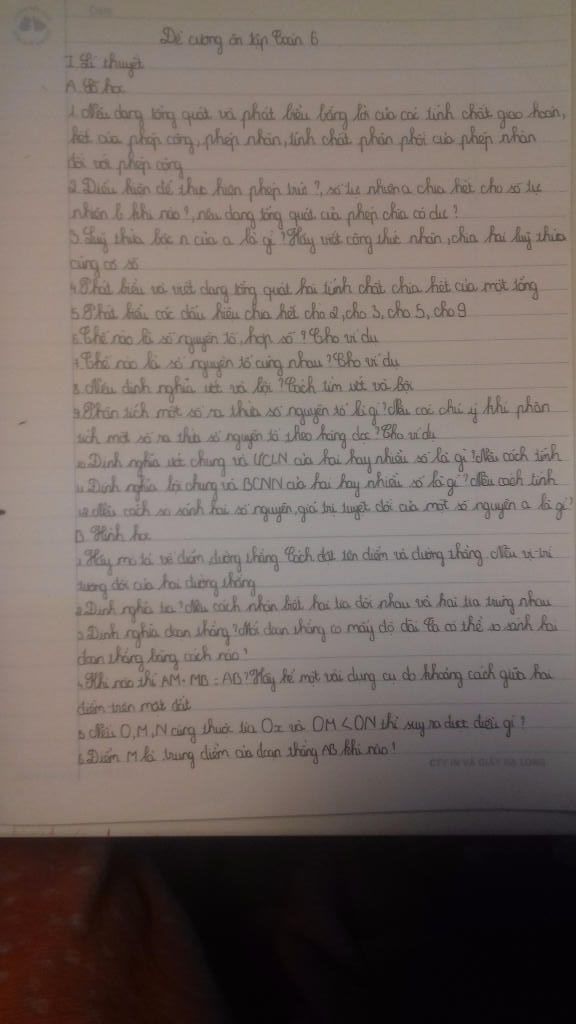 Date:
Đề cương ôn tập Toán 6
I. Lí thuyết
A. Số học
1. Nêu dạng tổng quát và phát biểu bằng lời của các tính chất giao hoán,
kết của phép cộng, phép nhân, tính chất phân phối của phép nhân
đối với phép cộng
2. Điều kiện để thực hiện phép trừ?, số tự nhiên a chia hết cho số tự
nhiên b khi nào?, nêu dạng tổng quát của phép chia có dư?
3. Luỹ thừa bậc n của a là gì? Hãy viết công thức nhân, chia hai luỹ thừa
cùng cơ số
4. Phát biểu và viết dạng tổng quát hai tính chất chia hết của một tổng
5. Phát biểu các dấu hiệu chia hết cho 2, cho 3, cho 5, cho 9
6. Thế nào là số nguyên tố, hợp số? Cho ví dụ
7. Thế nào là số nguyên tố cùng nhau? Cho ví dụ
8. Nêu định nghĩa ước và bội? Cách tìm ước và bội
9. Phân tích một số ra thừa số nguyên tố là gì? Nêu các chú ý khi phân
tích một số ra thừa số nguyên tố theo hàng dọc? Cho ví dụ
10. Định nghĩa ước chung và ƯCLN của hai hay nhiều số là gì? Nêu cách tính
11. Định nghĩa bội chung và BCNN của hai hay nhiều số là gì? Nêu cách tính
12. Nêu cách so sánh hai số nguyên, giá trị tuyệt đối của một số nguyên a là gì?
B. Hình học
1. Hãy mô tả về điểm, đường thẳng. Cách đặt tên điểm và đường thẳng. Nêu vị trí
tương đối của hai đường thẳng
2. Định nghĩa tia? Nêu cách nhận biết hai tia đối nhau và hai tia trùng nhau
3. Định nghĩa đoạn thẳng? Mỗi đoạn thẳng có mấy độ dài. Ta có thể so sánh hai
đoạn thẳng bằng cách nào?
4. Khi nào thì AM + MB = AB? Hãy kể một vài dụng cụ đo khoảng cách giữa hai
điểm trên mặt đất
5. Nếu O, M, N cùng thuộc tia Ox và OM < ON thì suy ra được điều gì?
6. Điểm M là trung điểm của đoạn thẳng AB khi nào?
CTY IN VÀ GIẤY HẠ LONG